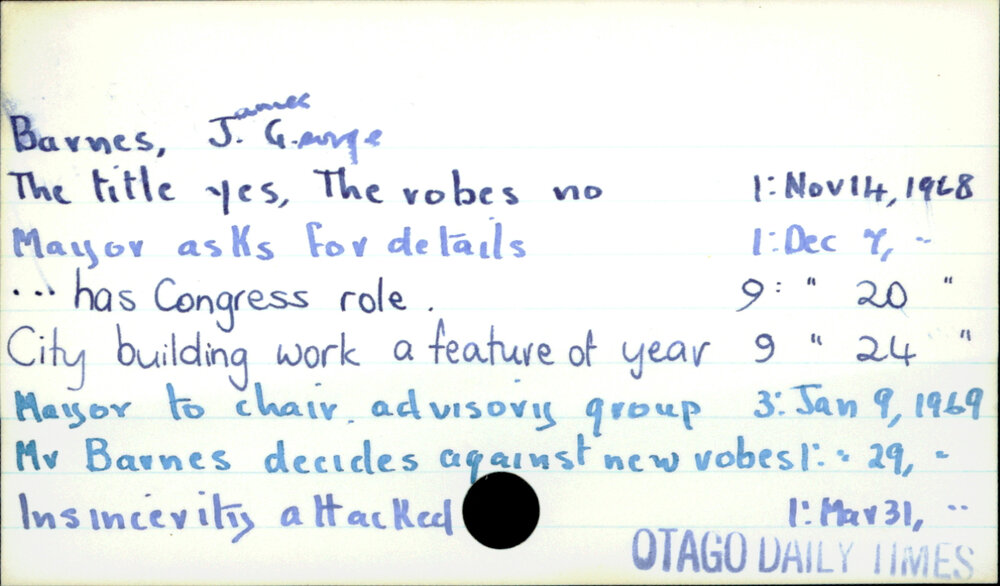 Barnes, J.ames G.eorge
The title yes, The robes no 1: Nov 14, 1968
Mayor asks for details 1: Dec 7, "
... has Congress role. 9: " 20 "
City building work a feature of year 9 " 24 "
Mayor to chair advisory group 3: Jan 9, 1969
Mr Barnes decides against new robes 1: " 29, "
Insincerity attacked 1: Mar 31, "
OTAGO DAILY TIMES